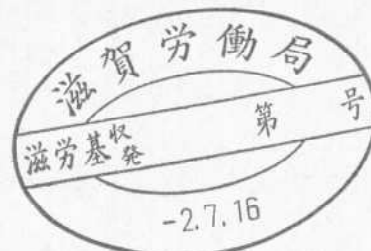 滋賀労働局
滋労基収発 第 号
-2.7.16